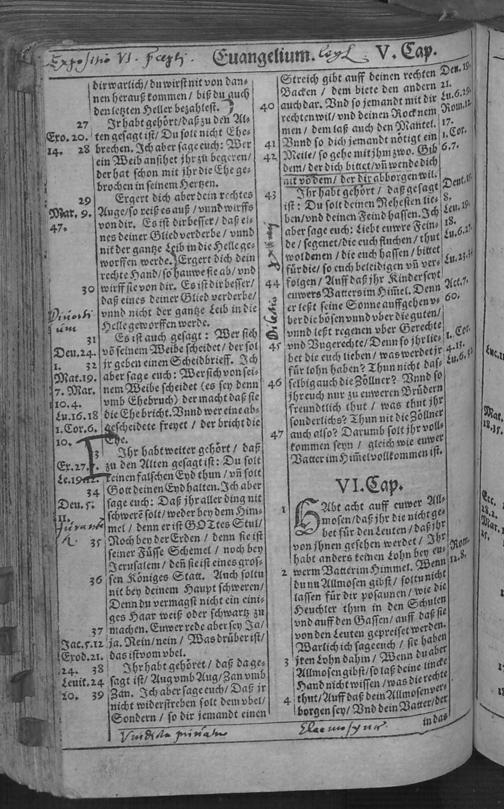 Expositio VI. præcepti.
Euangelium.
V. Cap.
dir warlich/ du wirst nit von dan-
nen herauß kommen/ biß du auch
den letzten Heller bezahlest.
27 Ir habt gehört/ daß zu den Al-
Exo. 20. ten gesagt ist/ Du solt nicht Ehe-
14. 28 brechen. Ich aber sage euch: Wer
ein Weib ansihet jhr zu begeren/
der hat schon mit jhr die Ehe ge-
brochen in seinem Hertzen.
29 Ergert dich aber dein rechtes
Mar. 9. Auge/ so reiß es auß/ vnnd wirffs
47. von dir. Es ist dir besser/ daß ei-
nes deiner Glied verderbe/ vnnd
nit der gantze Leib in die Helle ge-
worffen werde. Ergert dich dein
rechte Hand/ so hauwe sie ab/ vnd
30 wirff sie von dir. Es ist dir besser/
daß eines deiner Glied verderbe/
vnnd nicht der gantze Leib in die
Helle geworffen werde.
31 Es ist auch gesagt: Wer sich
Deu. 24. võ seinem Weibe scheidet/ der sol
1. 32 jr geben einen Scheidbrieff. Ich
Mat. 19. aber sage euch: Wer sich von sei-
7. Mar. nem Weibe scheidet (es sey denn
10. 4. vmb Ehebruch) der macht daß sie
Lu. 16. 18 die Ehe bricht. Vnnd wer eine ab-
1. Cor. 6. gescheidete freyet/ der bricht die
10. Ehe.
Ihr habt weiter gehört/ daß
Ex. 27. 7. zu den Alten gesagt ist: Du solt
Le. 19. 12. keinen falschen Eyd thun/ vñ solt
34 Gott deinen Eyd halten. Ich aber
Deu. 5. sage euch: Daß jhr aller ding nit
11. schweren solt/ weder bey dem Him-
mel/ denn er ist GOttes Stul/
35 Noch bey der Erden/ denn sie ist
seiner Füsse Schemel/ noch bey
Jerusalem/ deñ sie ist eines gros-
36 sen Königes Statt. Auch soltu
nit bey deinem Haupt schweren/
Denn du vermagst nicht ein eini-
ges Haar weiß oder schwartz zu
37 machen. Euwer rede aber sey/ Ja/
Jac. 5. 12 ja. Nein/ nein/ Was drüber ist/
Exod. 21. das ist vom vbel.
24. 38 Ihr habt gehöret/ daß da ge-
Leuit. 24 sagt ist/ Aug vmb Aug/ Zan vmb
20. 39 Zan. Ich aber sage euch/ Daß jr
nicht widerstreben solt dem vbel/
Sondern/ so dir jemandt einen
Vindicta privata
Streich gibt auff deinen rechten Deu. 19.
Backen/ dem biete den andern 21.
40 auch dar. Vnd so jemandt mit dir Lu. 6. 29.
rechten wil/ vnd deinen Rock nem Rom. 12.
men/ dem laß auch den Mantel. 17.
41 Vnnd so dich jemandt nötigt ein 1. Cor.
42 Meile/ so gehe mit jhm zwo. Gib 6. 7.
dem/ der dich bittet/ vñ wende dich
nit võ dem/ der dir abborgen wil.
43 Ihr habt gehört/ daß gesagt
ist: Du solt deinen Nehesten lie-
ben/ vnd deinen Feind hassen. Ich
aber sage euch: Liebt euwre Fein-
de/ segenet/ die euch fluchen/ thut
wol denen/ die euch hassen/ bittet
für die/ so euch beleidigen vñ ver-
44 folgen/ Auff daß jhr Kinder seyt
euwers Vatters im Himel. Denn
er leßt seine Sonne auffgehen v-
ber die bösen vnnd vber die guten/
vnnd leßt regenen vber Gerechte
45 vnd Vngerechte/ Denn so jhr lie-
bet die euch lieben/ was werdet jr
für lohn haben? Thun nicht das-
46 selbig auch die Zöllner? Vnnd so
jhr euch nur zu euweren Brüdern
freundtlich thut/ was thut jhr
sonderlichs? Thun nit die Zöllner
47 auch also? Darumb solt jhr voll-
kommen seyn/ gleich wie euwer
Vatter im Himel vollkommen ist.
VI. Cap.
1 Habt acht auff euwer All-
mosen/ daß jhr die nicht ge-
bet für den Leuten/ daß jhr
von jhnen gesehen werdet/ Ihr
habt anders keinen Lohn bey eu-
2 werm Vatter im Himmel. Wenn
du nu Allmosen gibst/ soltu nicht
lassen für dir posaunen/ wie die
Heuchler thun in den Schulen
vnd auff den Gassen/ auff daß sie
von den Leuten gepreiset werden.
Warlich ich sage euch/ sie haben
3 jren Lohn dahin/ Wenn du aber
Allmosen gibst/ so laß deine lincke
Hand nicht wissen/ was die rechte
4 thut/ Auff daß dein Allmosen ver-
borgen sey/ Vnd dein Vatter/ der
in das
Eleemosyna